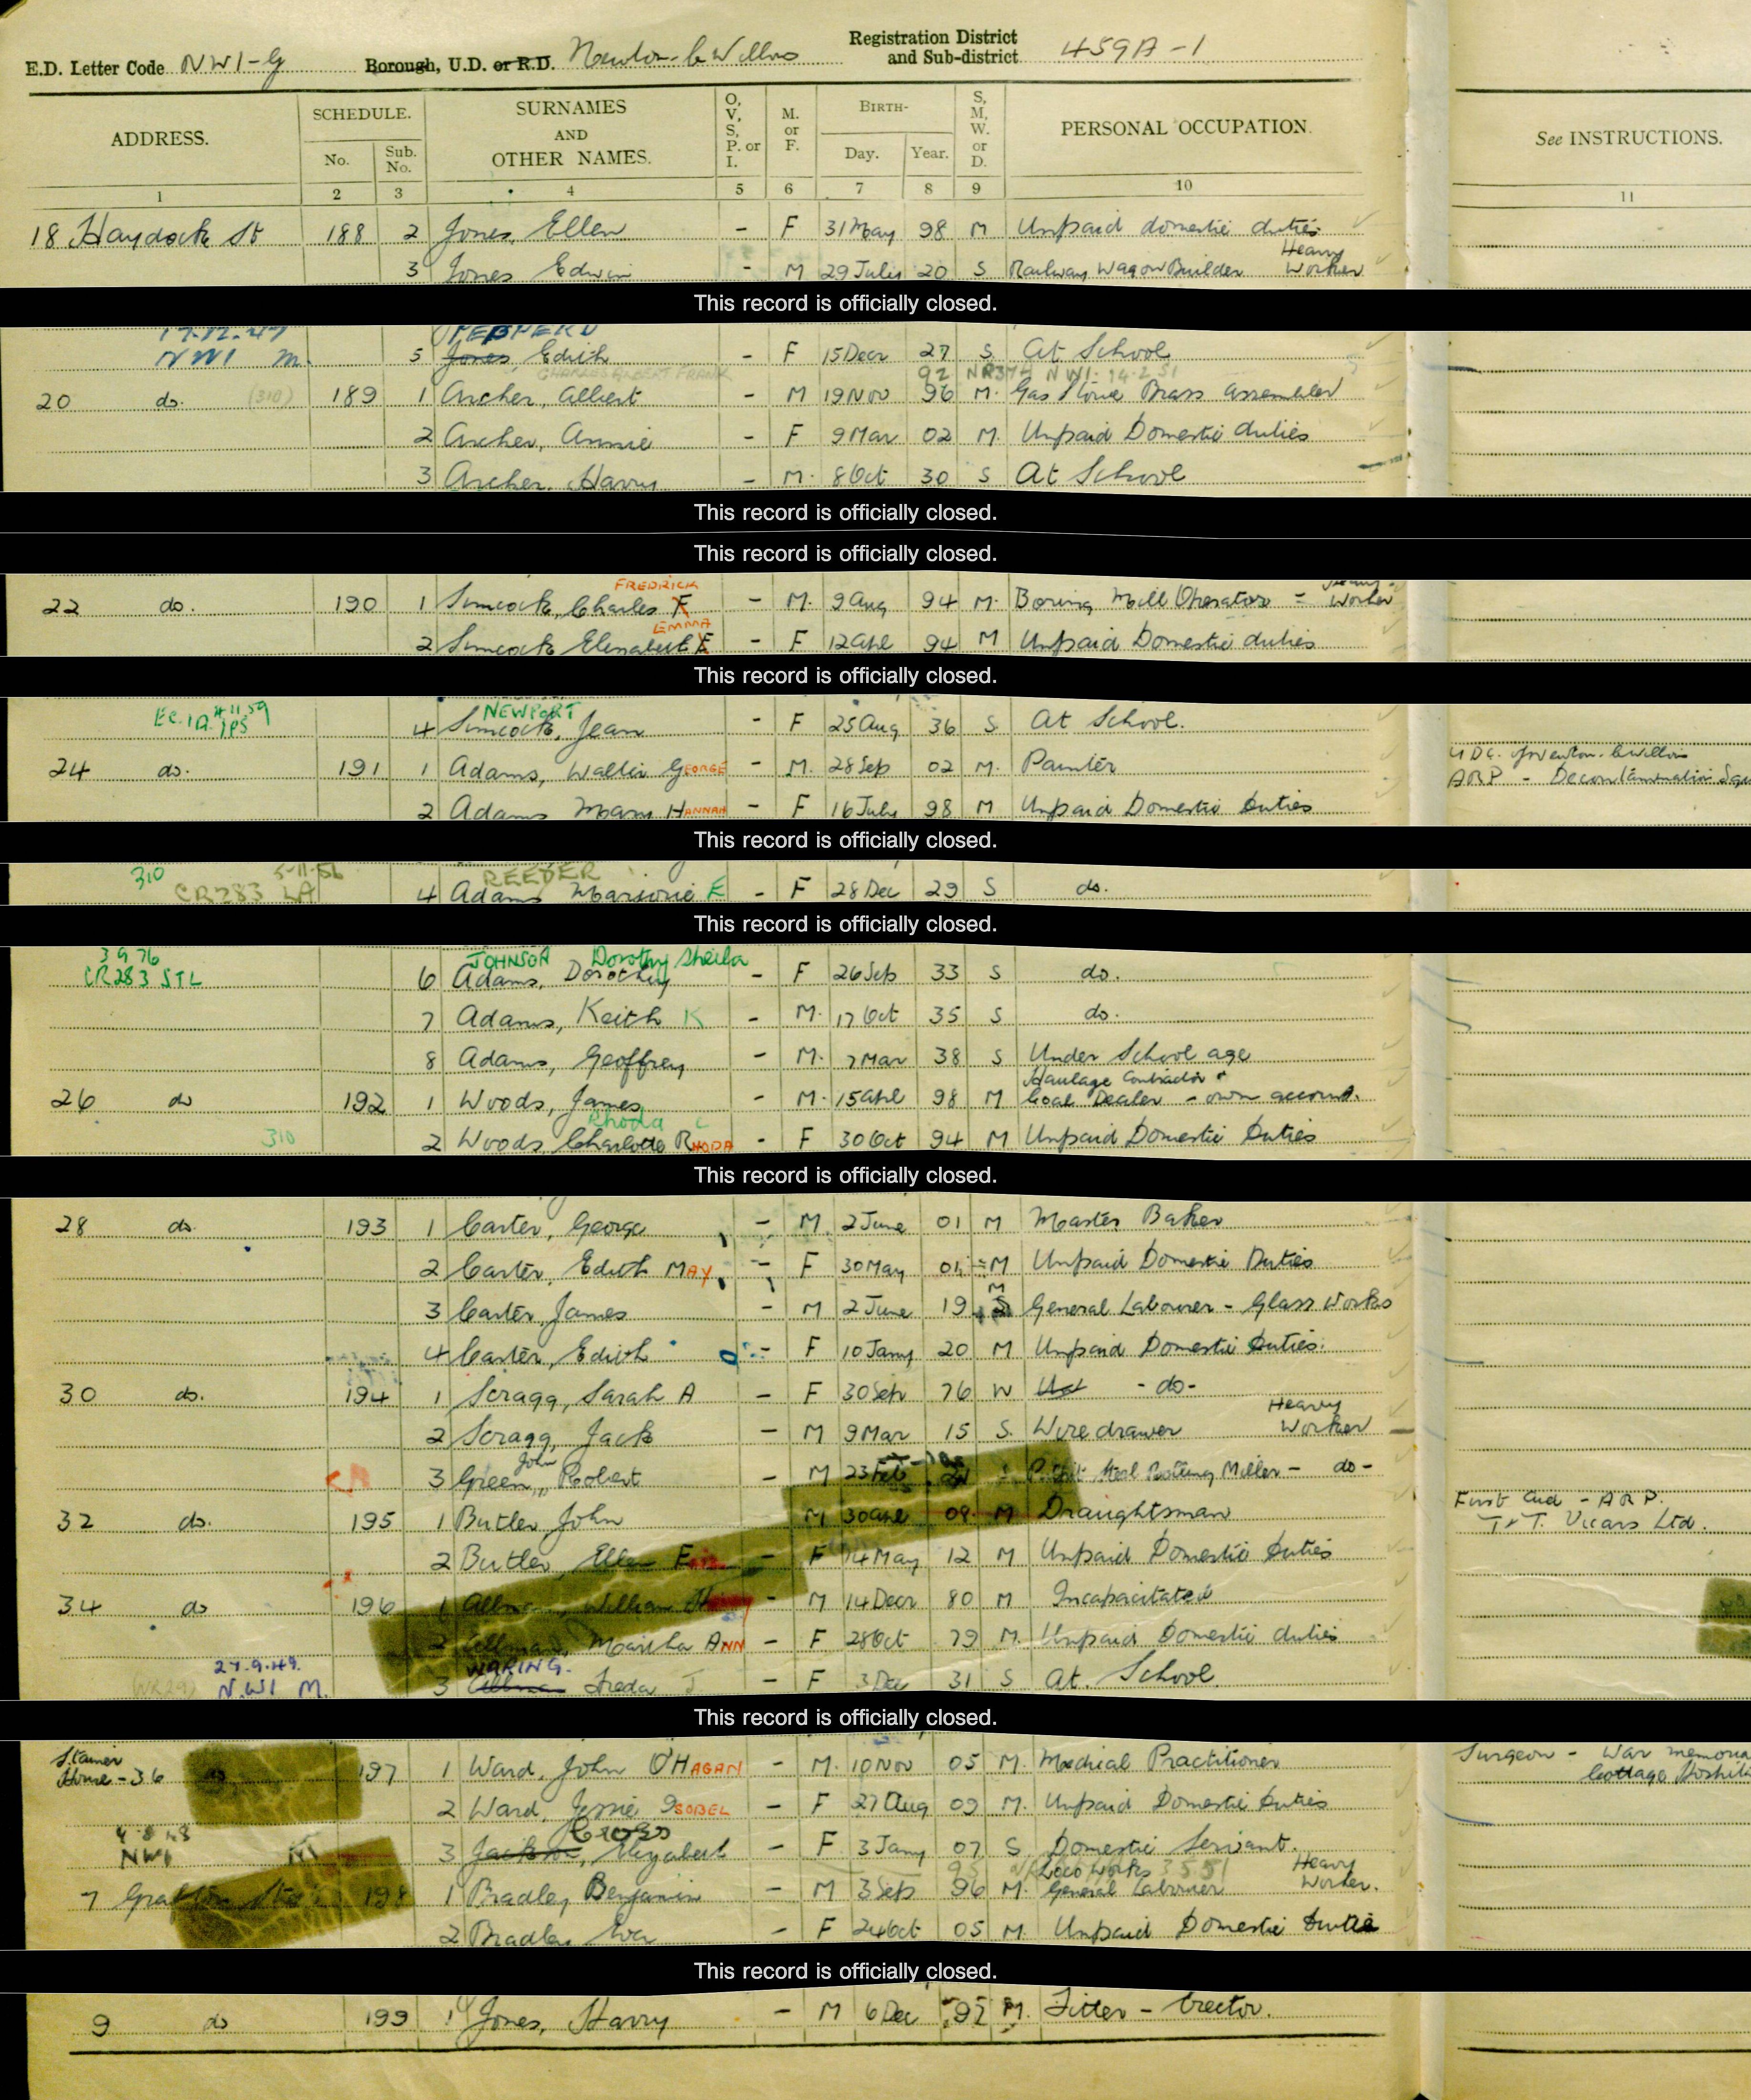 E.D. Letter Code NW1-G Borough, U.D. or R.D. Newton-le-Willows Registration District and Sub-district 459A-1
ADDRESS. SCHEDULE. No. Sub. No. SURNAMES AND OTHER NAMES. O, V, S, P. or I. M. or F. BIRTH- Day. Year. S, M, W. or D. PERSONAL OCCUPATION. See INSTRUCTIONS.
1 2 3 4 5 6 7 8 9 10 11
18 Haydock St 188 2 Jones, Ellen - F 31 May 98 M Unpaid domestic duties
3 Jones Edwin - M 29 July 20 S Railway Wagon Builder Heavy Worker
This record is officially closed.
17-12-47
NW1 M. 5 Jones, Edith - F 15 Decr 27 S At School
CHARLES ALBERT FRANK 92 NR374 NW1. 14.2.51
20 do. (310) 189 1 Archer, Albert - M 19 Nov 96 M. Gas Stove Brass Assembler
2 Archer, Annie - F 9 Mar 02 M. Unpaid Domestic duties
3 Archer, Harry - M. 8 Oct 30 S At School
This record is officially closed.
This record is officially closed.
FREDRICK
22 do. 190 1 Simcock, Charles F - M. 9 Aug 94 M. Boring Mill Operator = Heavy Worker
EMMA
2 Simcock Elizabeth E - F 12 Apl 94 M Unpaid Domestic duties
This record is officially closed.
NEWPORT
4 Simcock, Jean - F 25 Aug 36 S At School.
24 do. 191 1 Adams, Walter GEORGE - M. 28 Sep 02 M. Painter UDC. Newton-le-Willows ARP - Decontamination
2 Adams Mary HANNAH - F 16 July 98 M Unpaid Domestic Duties
This record is officially closed.
310 5-11-56 REEDER
CR283 LA 4 Adams Marjorie E - F 28 Dec 29 S do.
This record is officially closed.
3 9 76 JOHNSON Dorothy Sheila
CR283 STL 6 Adams, Dorothy - F 26 Sep 33 S do.
7 Adams, Keith K - M. 17 Oct 35 S do.
8 Adams, Geoffrey - M. 7 Mar 38 S Under School age
Haulage Contractor &
26 do 192 1 Woods, James - M. 15 Apl 98 M Coal Dealer - own account.
Rhoda C
310 2 Woods, Charlotte RHODA - F 30 Oct 94 M Unpaid Domestic Duties
This record is officially closed.
28 do. 193 1 Carter, George - M. 2 June 01 M Master Baker
2 Carter, Edith MAY - F 30 May 01 M Unpaid Domestic Duties
M
3 Carter, James - M 2 June 19 S General Labourer - Glass Works
4 Carter, Edith - F 10 Jany 20 M Unpaid Domestic Duties.
30 do. 194 1 Scragg, Sarah A - F 30 Sep 76 W - do-
2 Scragg, Jack - M 9 Mar 15 S. Wire drawer Heavy Worker
John
3 Green, Robert - M 23 Feb Miller - do-
32 do. 195 1 Butler, John M 30 Apl 09 M Draughtsman First Aid - ARP. T & T. Vicars Ltd.
2 Butler, Ellen - F 14 May 12 M Unpaid Domestic Duties
34 do 196 1 Allman, William - M 14 Decr 80 M Incapacitated
2 Allman, Martha ANN - F 28 Oct 79 M. Unpaid Domestic duties
27.9.49. WARING.
(WR29) N.W1 M. 3 Allman Freda J - F 3 Dec 31 S At School
This record is officially closed.
Stainer House - 36 do 197 1 Ward, John O'HAGAN - M. 10 Nov 05 M. Medical Practitioner Surgeon - War memorial Cottage Hospital
2 Ward, Jessie ISOBEL - F 27 Aug 09 M. Unpaid Domestic Duties
Cross
NW1 M 3 Jackson, Elizabeth - F 3 Jany 07 S Domestic Servant.
95 Loco Works 3 5 51
7 198 1 Bradley Benjamin - M 3 Sep 96 M. General Labourer Heavy Worker.
2 Bradley Eva - F 24 Oct 05 M. Unpaid Domestic Duties
This record is officially closed.
9 do 199 1 Jones, Harry - M 6 Dec 97 M. Fitter - Erector.